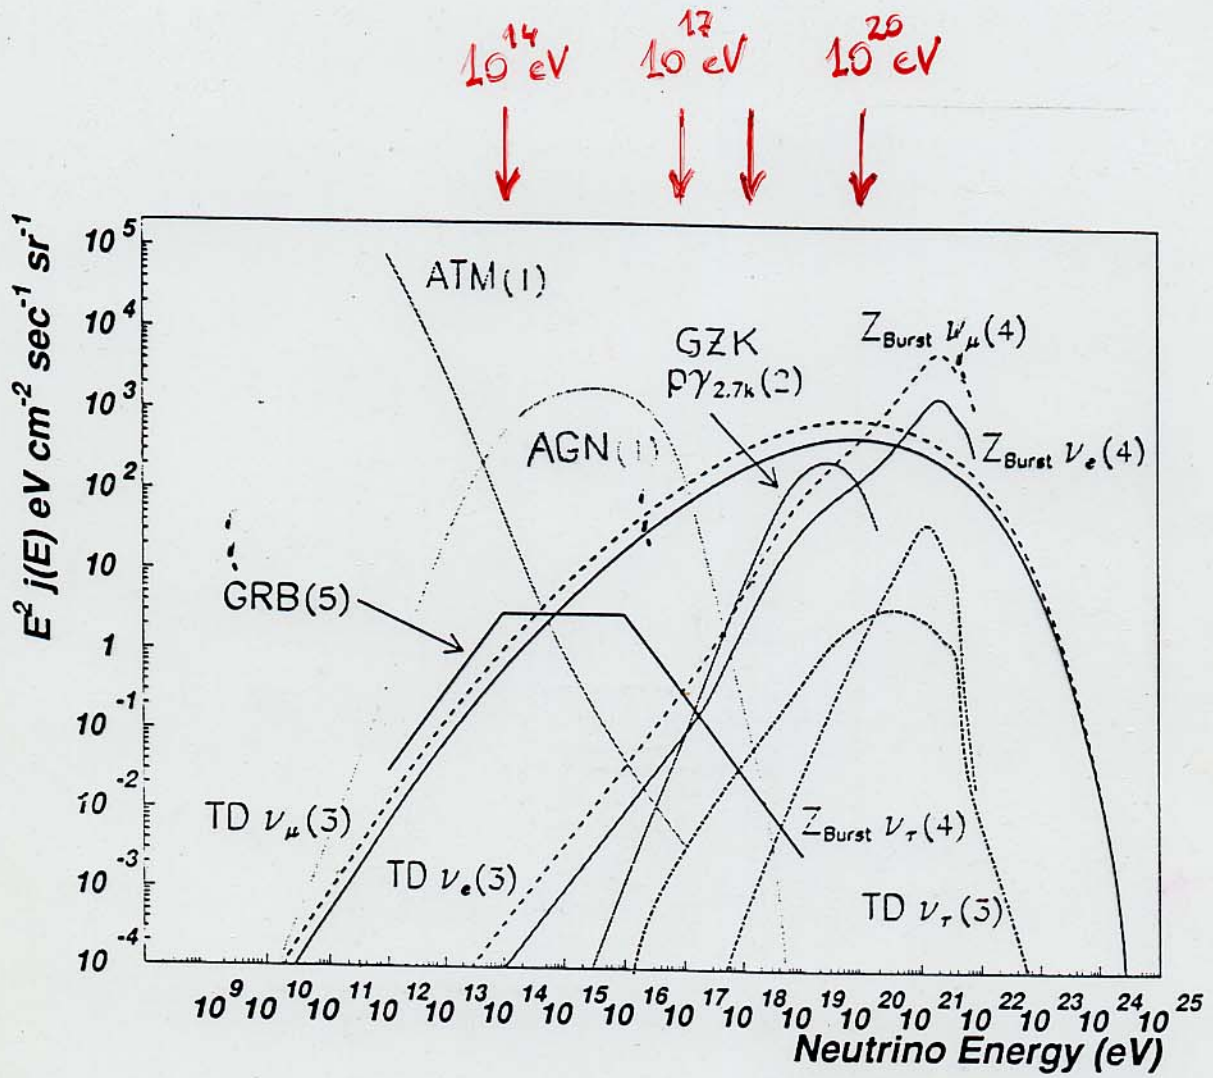 10^14 eV 10^17 eV 10^20 eV
E^2 j(E) eV cm^-2 sec^-1 sr^-1
10^5
10^4
10^3
10^2
10
1
10^-1
10^-2
10^-3
10^-4
ATM(1)
GZK
pγ2.7k(2)
Z_Burst ν_μ(4)
AGN(1)
Z_Burst ν_e(4)
GRB(5)
TD ν_μ(3)
TD ν_e(3)
Z_Burst ν_τ(4)
TD ν_τ(3)
10^9 10^10 10^11 10^12 10^13 10^14 10^15 10^16 10^17 10^18 10^19 10^20 10^21 10^22 10^23 10^24 10^25
Neutrino Energy (eV)